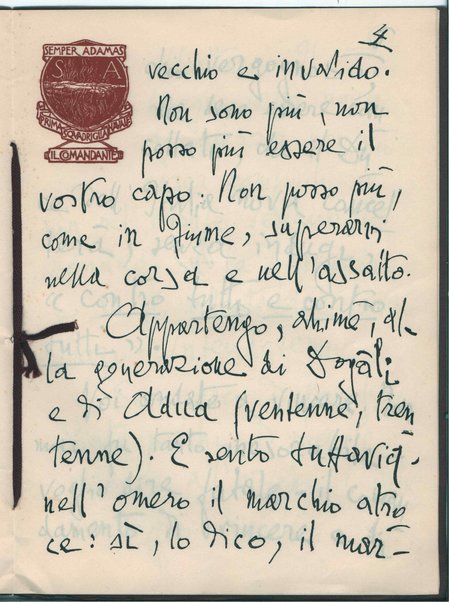 4
SEMPER ADAMAS
S A
PRIMA SQUADRIGLIA NAVALE
IL COMANDANTE
vecchio e invalido.
Non sono più, non
posso più essere il
vostro capo. Non posso più,
come in Fiume, superarvi
nella corsa e nell'assalto.
Appartengo, ahimè, al-
la generazione di Dogali
e di Adua (ventenne, tren
tenne). E sento tuttavia
nell'omero il marchio atro
ce: sì, lo dico, il mar-